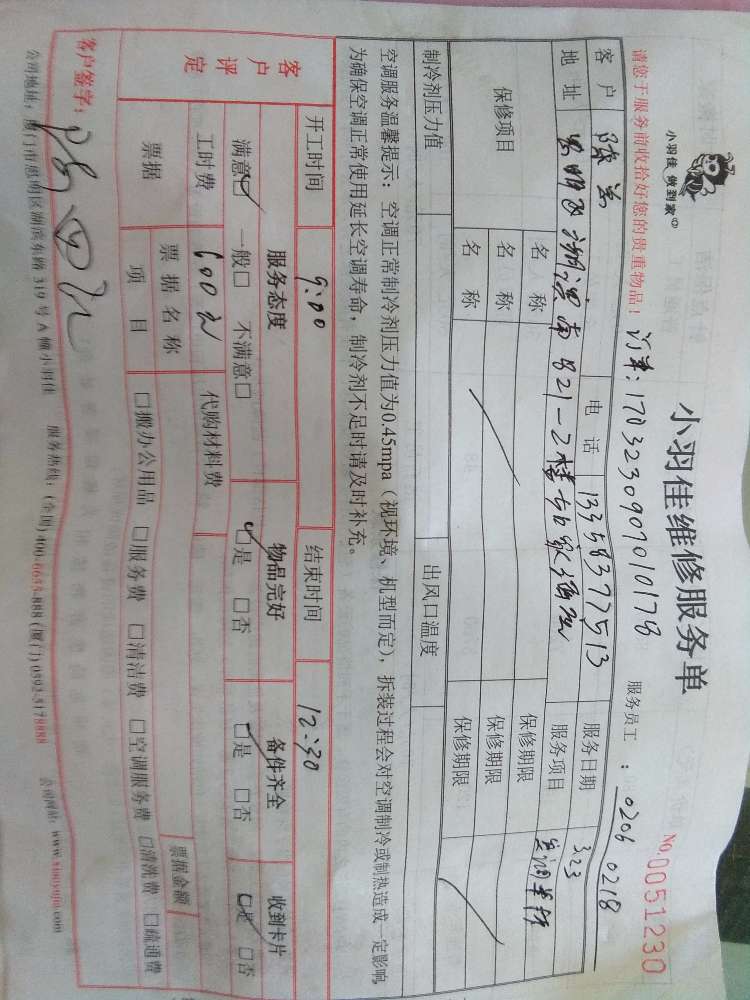 小羽佳 做到家
小羽佳维修服务单
No.0051230
请您于服务前收拾好您的贵重物品!
订单: 1703230907010178
服务员工 : 0206 0218
客户
电话 13358377513
服务日期 3.23
地址 思明区湖滨南821-2楼
服务项目 空调
保修项目 名称 保修期限
名称 保修期限
名称 保修期限
制冷剂压力值 出风口温度
空调服务温馨提示: 空调正常制冷剂压力值为0.45mpa (视环境、机型而定), 拆装过程会对空调制冷或制热造成一定影响,
为确保空调正常使用延长空调寿命, 制冷剂不足时请及时补充。
开工时间 9:00 结束时间 12:30
客户评定 服务态度 物品完好 备件齐全 收到卡片
满意☑ 一般□ 不满意□ ☑是 □否 ☑是 □否 ☑是 □否
工时费 600元 代购材料费
票据 票据名称 票据金额
项目 □搬办公用品 □服务费 □清洁费 □空调服务费 □清洗费 □疏通费
客户签字:
公司地址: 厦门市思明区湖滨东路 319 号 A 幢小羽佳 服务热线: (全国) 400-6655-888 (厦门) 0592-5178888 公司网站: www.xiaoyujia.com